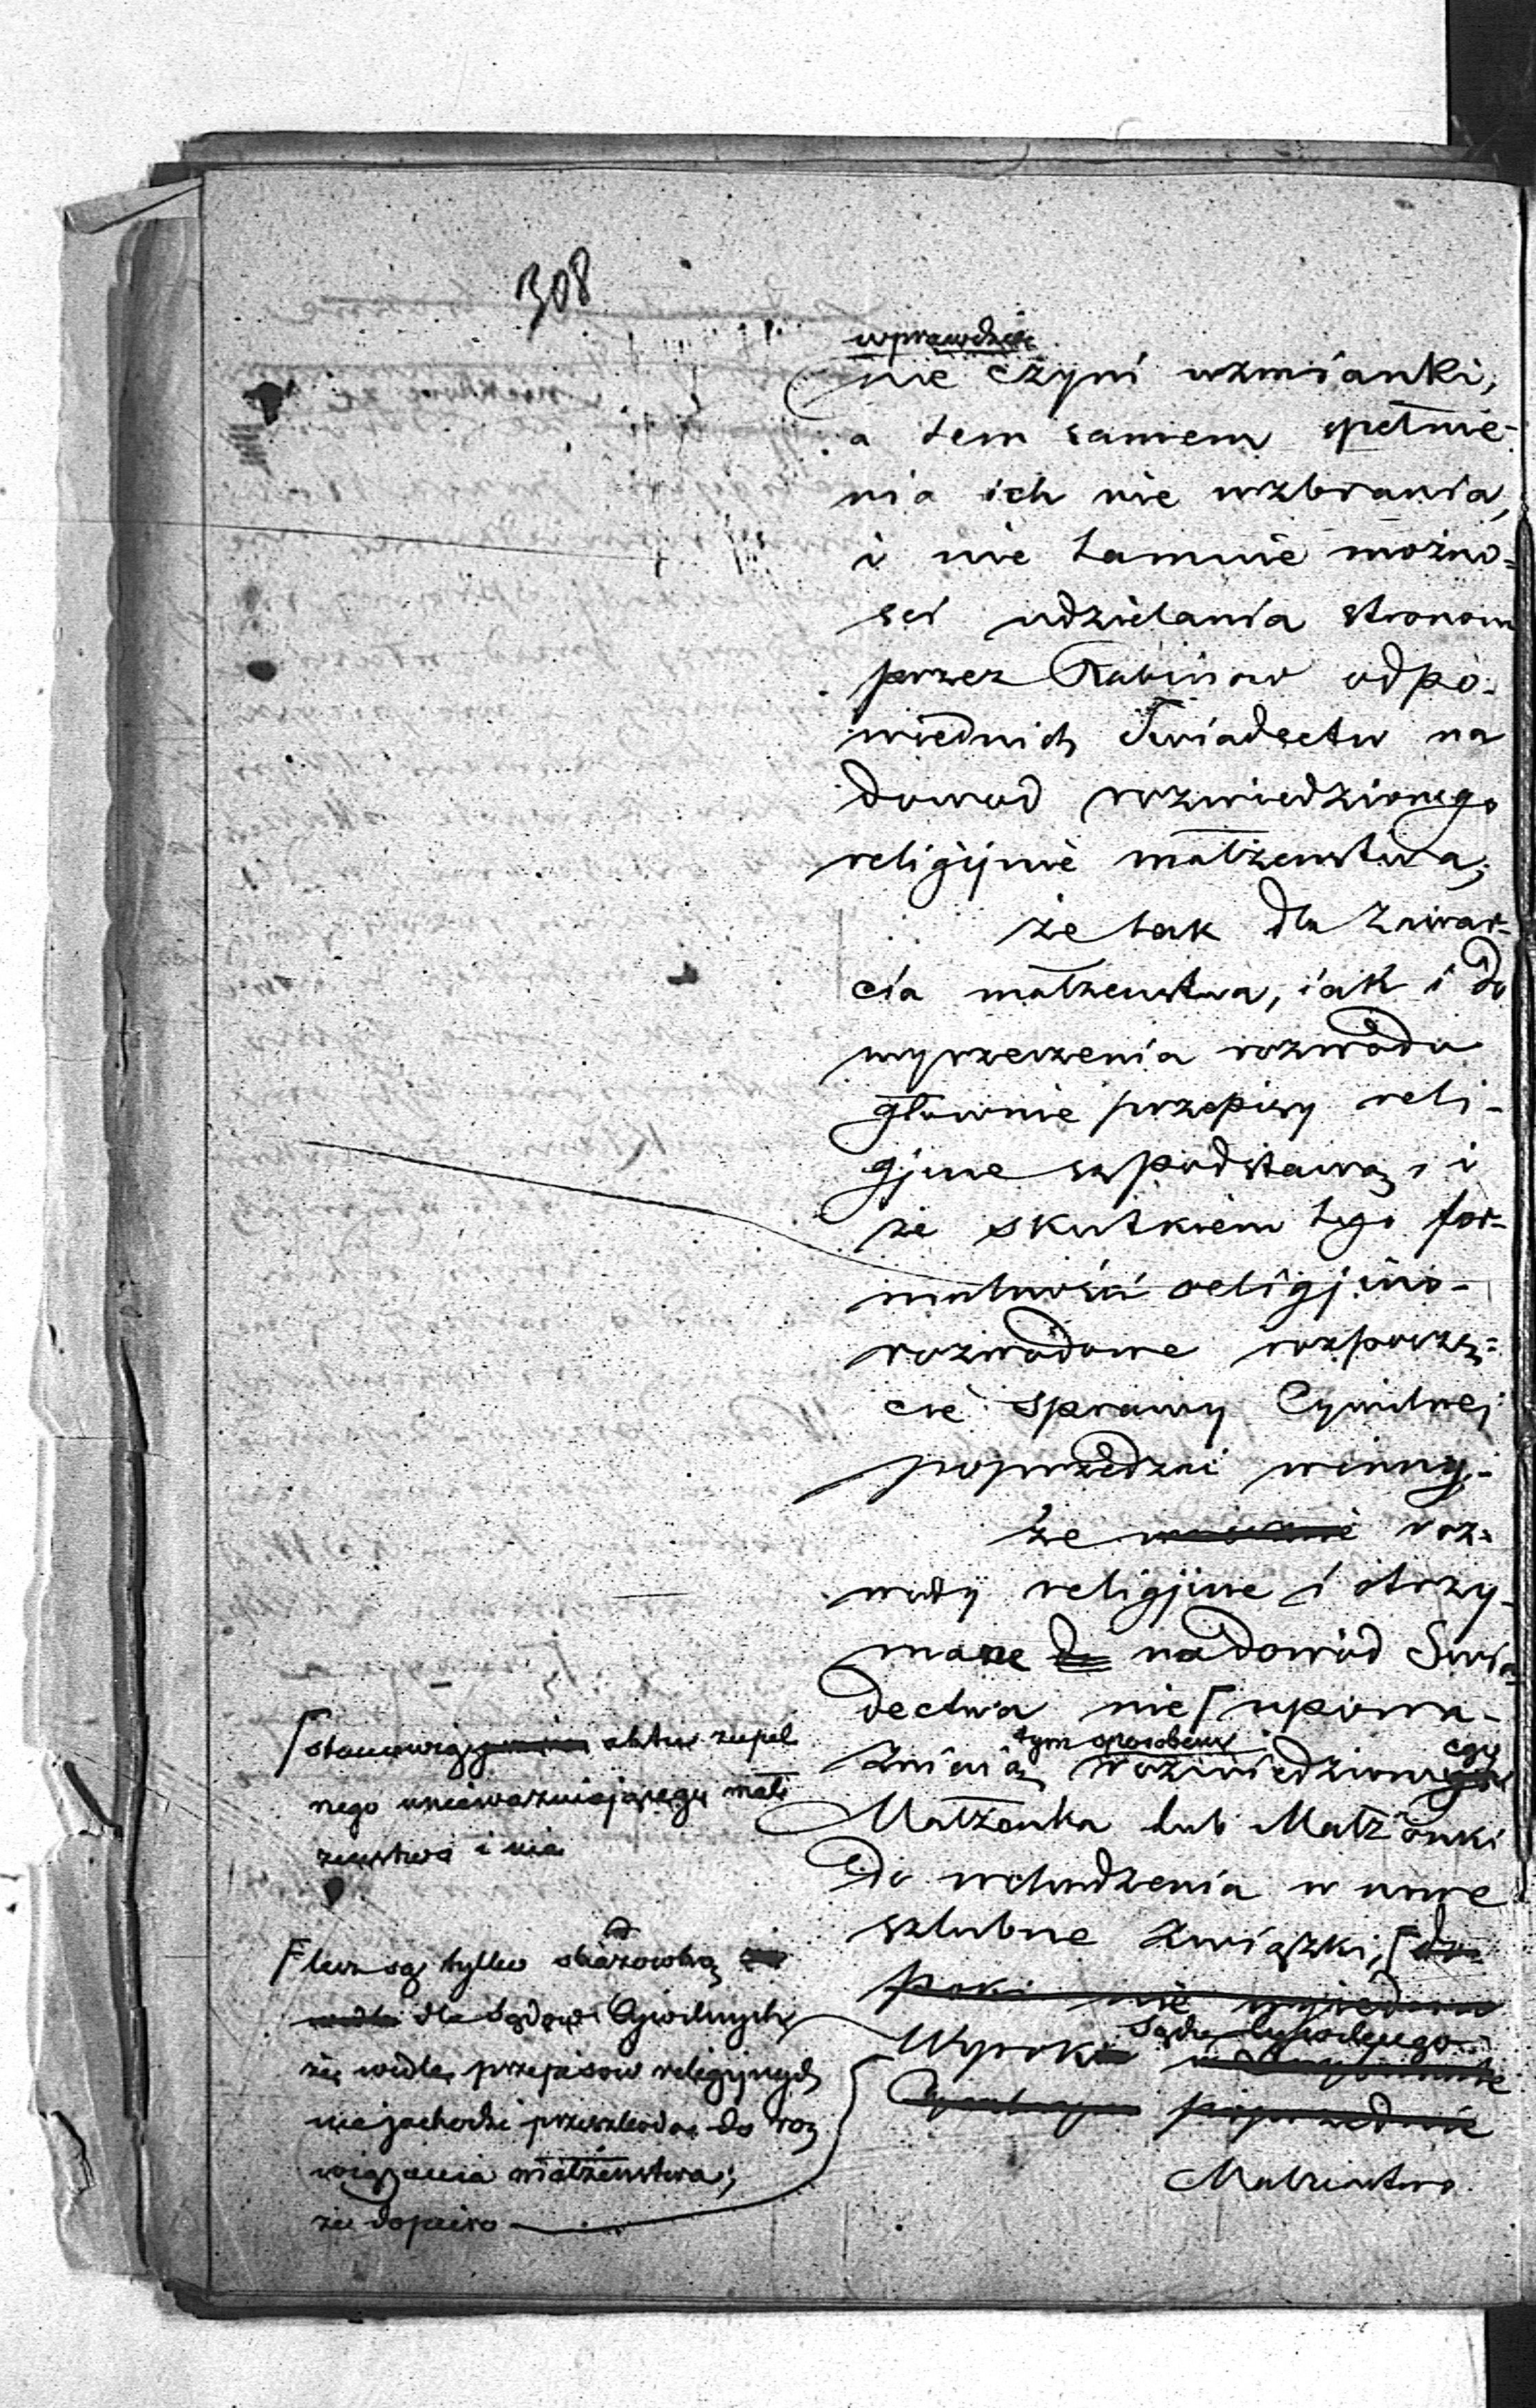 308
wprawdzie
nie czyni wzmianki,
a tem samem spełnie-
nia ich nie wzbrania,
i nie tamuie możno-
sci udzielania stronom
przez Rabinow odpo-
wiednich Swiadectw na
dowod rozwiedzionego
religijnie małżenstwa;
że tak dla zawar-
cia małżenstwa, iak i do
wyrzeczenia rozwodu
głownie przepisy reli-
gijne są podstawą, i
że skutkiem tego for-
malności religijno-
rozwodowe rozpoczę-
cie sprawy Cywilnej
poprzedzać winny;
że roz-
wody religijne i otrzy-
mane na dowód Swia-
dectwa nie upowa-
tym sposobem
żniaią rozwiedzionego
Małżonka lub Małżonki
do wchodzenia w nowe
szlubne związki,
poki nie
Sądu Cywilnego
Wyrok
poprzednie
Małżeństwo
stanowią aktu zupeł
nego unieważniającego mał
żeństwa i nie
lecz są tylko skazowką
dla Sądów Cywilnych
że wedle przepisow religijnych
nie zachodzi przeszkoda do roz
wiązania małżeństwa;
że dopiero